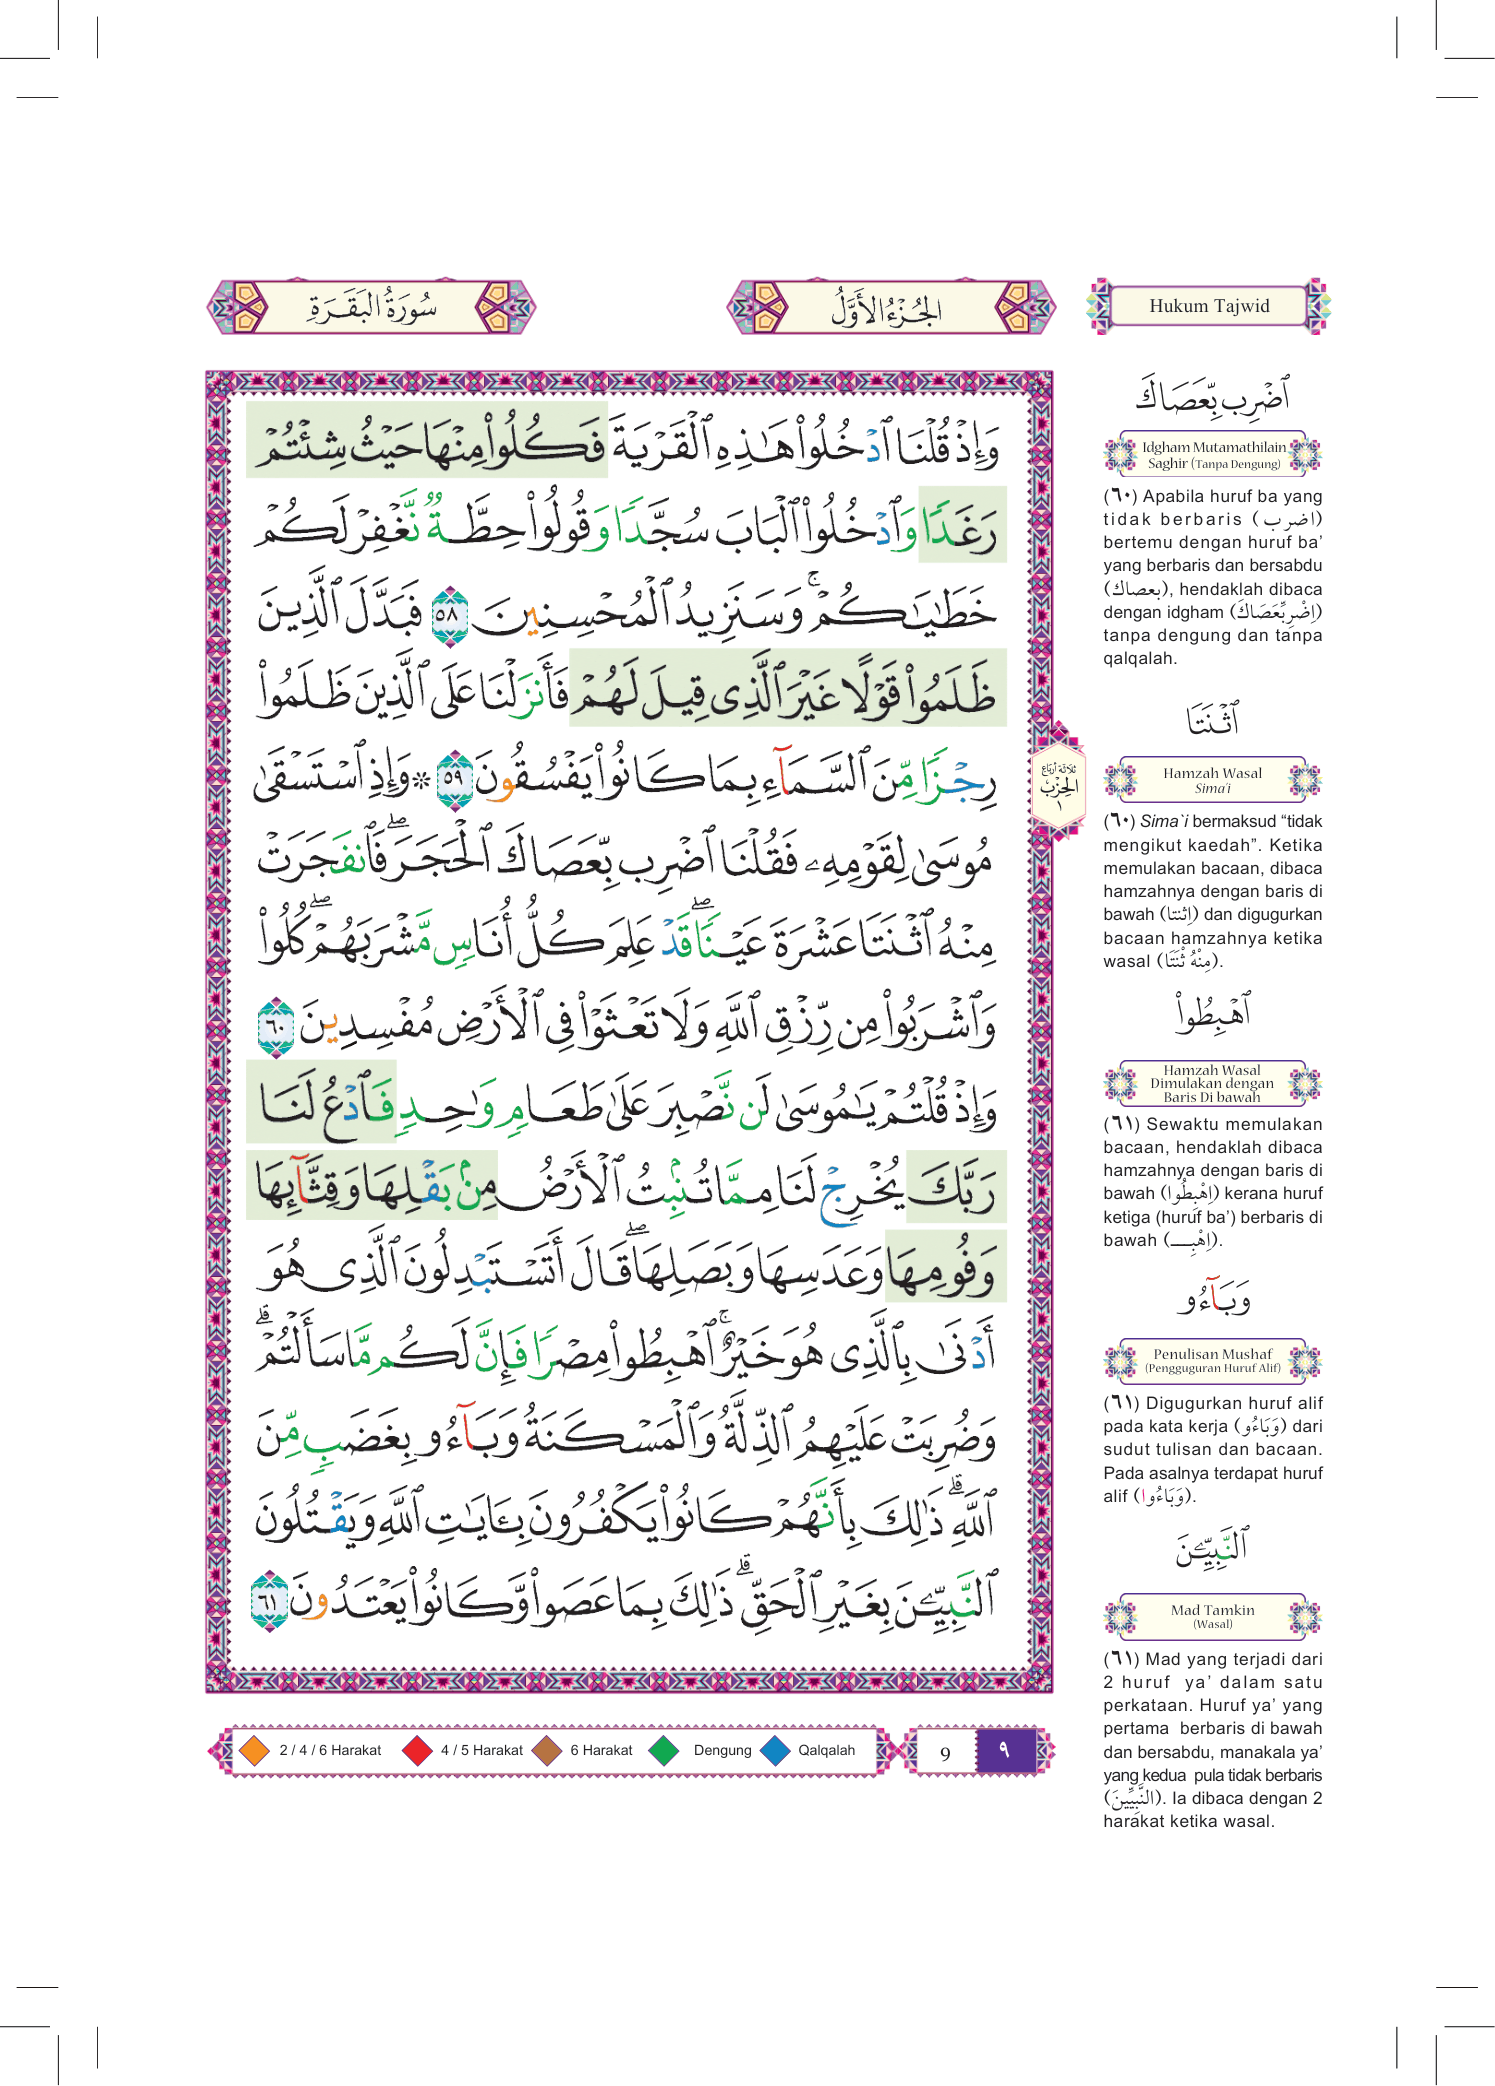 سُورَةُ الْبَقَرَةِ
الجُزْءُ الأَوَّلُ
Hukum Tajwid
وَإِذْ قُلْنَا ٱدْخُلُوا۟ هَـٰذِهِ ٱلْقَرْيَةَ فَكُلُوا۟ مِنْهَا حَيْثُ شِئْتُمْ
رَغَدًا وَٱدْخُلُوا۟ ٱلْبَابَ سُجَّدًا وَقُولُوا۟ حِطَّةٌ نَّغْفِرْ لَكُمْ
خَطَـٰيَـٰكُمْ ۚ وَسَنَزِيدُ ٱلْمُحْسِنِينَ ٥٨ فَبَدَّلَ ٱلَّذِينَ
ظَلَمُوا۟ قَوْلًا غَيْرَ ٱلَّذِى قِيلَ لَهُمْ فَأَنزَلْنَا عَلَى ٱلَّذِينَ ظَلَمُوا۟
رِجْزًا مِّنَ ٱلسَّمَآءِ بِمَا كَانُوا۟ يَفْسُقُونَ ٥٩ * وَإِذِ ٱسْتَسْقَىٰ
مُوسَىٰ لِقَوْمِهِۦ فَقُلْنَا ٱضْرِب بِّعَصَاكَ ٱلْحَجَرَ ۖ فَٱنفَجَرَتْ
مِنْهُ ٱثْنَتَا عَشْرَةَ عَيْنًا ۖ قَدْ عَلِمَ كُلُّ أُنَاسٍ مَّشْرَبَهُمْ ۖ كُلُوا۟
وَٱشْرَبُوا۟ مِن رِّزْقِ ٱللَّهِ وَلَا تَعْثَوْا۟ فِى ٱلْأَرْضِ مُفْسِدِينَ ٦٠
وَإِذْ قُلْتُمْ يَـٰمُوسَىٰ لَن نَّصْبِرَ عَلَىٰ طَعَامٍ وَٰحِدٍ فَٱدْعُ لَنَا
رَبَّكَ يُخْرِجْ لَنَا مِمَّا تُنۢبِتُ ٱلْأَرْضُ مِنۢ بَقْلِهَا وَقِثَّآئِهَا
وَفُومِهَا وَعَدَسِهَا وَبَصَلِهَا ۖ قَالَ أَتَسْتَبْدِلُونَ ٱلَّذِى هُوَ
أَدْنَىٰ بِٱلَّذِى هُوَ خَيْرٌ ۚ ٱهْبِطُوا۟ مِصْرًا فَإِنَّ لَكُم مَّا سَأَلْتُمْ ۗ
وَضُرِبَتْ عَلَيْهِمُ ٱلذِّلَّةُ وَٱلْمَسْكَنَةُ وَبَآءُو بِغَضَبٍ مِّنَ
ٱللَّهِ ۗ ذَٰلِكَ بِأَنَّهُمْ كَانُوا۟ يَكْفُرُونَ بِـَٔايَـٰتِ ٱللَّهِ وَيَقْتُلُونَ
ٱلنَّبِيِّـۧنَ بِغَيْرِ ٱلْحَقِّ ۗ ذَٰلِكَ بِمَا عَصَوا۟ وَّكَانُوا۟ يَعْتَدُونَ ٦١
ثلاثة أرباع
الحِزْبُ
١
ٱضْرِب بِّعَصَاكَ
Idgham Mutamathilain
Saghir (Tanpa Dengung)
(٦٠) Apabila huruf ba yang
tidak berbaris (اضرب)
bertemu dengan huruf ba’
yang berbaris dan bersabdu
(بعصاك), hendaklah dibaca
dengan idgham (اِضْرِبِّعَصَاكَ)
tanpa dengung dan tanpa
qalqalah.
ٱثْنَتَا
Hamzah Wasal
Sima'i
(٦٠) Sima`i bermaksud “tidak
mengikut kaedah”. Ketika
memulakan bacaan, dibaca
hamzahnya dengan baris di
bawah (اِثنتا) dan digugurkan
bacaan hamzahnya ketika
wasal (مِنْهُ ثْنَتَا).
ٱهْبِطُوا۟
Hamzah Wasal
Dimulakan dengan
Baris Di bawah
(٦١) Sewaktu memulakan
bacaan, hendaklah dibaca
hamzahnya dengan baris di
bawah (اِهْبِطُوا) kerana huruf
ketiga (huruf ba’) berbaris di
bawah (اِهْبِـــ).
وَبَآءُو
Penulisan Mushaf
(Pengguguran Huruf Alif)
(٦١) Digugurkan huruf alif
pada kata kerja (وَبَاءُو) dari
sudut tulisan dan bacaan.
Pada asalnya terdapat huruf
alif (وَبَاءُوا).
ٱلنَّبِيِّـۧنَ
Mad Tamkin
(Wasal)
(٦١) Mad yang terjadi dari
2 huruf ya’ dalam satu
perkataan. Huruf ya’ yang
pertama berbaris di bawah
dan bersabdu, manakala ya’
yang kedua pula tidak berbaris
(النَّبِيِّينَ). Ia dibaca dengan 2
harakat ketika wasal.
2 / 4 / 6 Harakat 4 / 5 Harakat 6 Harakat Dengung Qalqalah
9 ٩